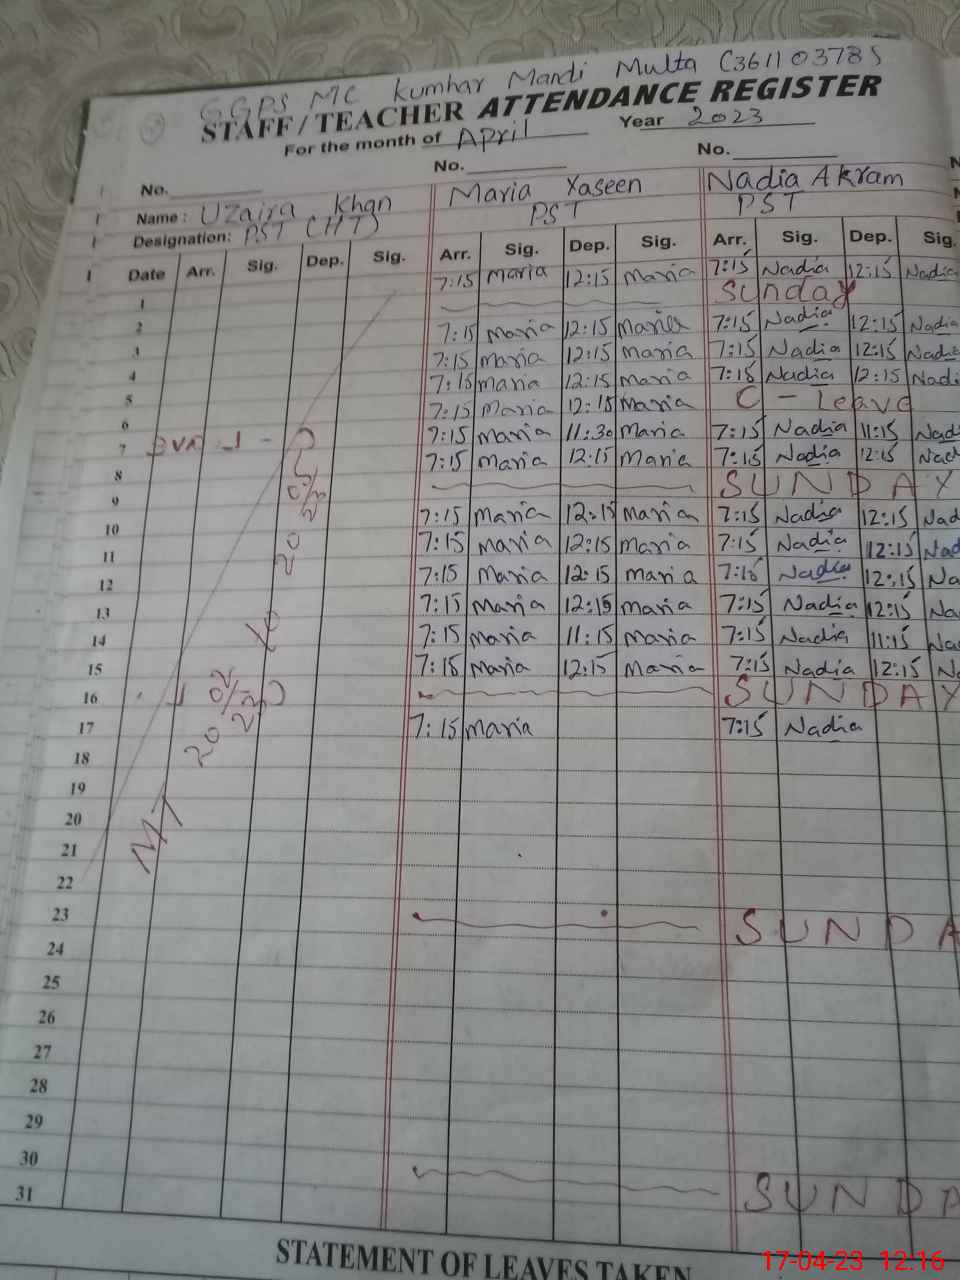 GGPS MC Kumhar Mandi Multa (36110378)
STAFF/TEACHER ATTENDANCE REGISTER
For the month of April Year 2023
No. No. No.
Name: Uzaira Khan Maria Yaseen Nadia Akram
Designation: PST (HT) PST PST
Date Arr. Sig. Dep. Sig. Arr. Sig. Dep. Sig. Arr. Sig. Dep. Sig.
1 7:15 Maria 12:15 Maria 7:15 Nadia 12:15 Nadia
2 Sunday
3 7:15 Maria 12:15 Maria 7:15 Nadia 12:15 Nadia
4 7:15 Maria 12:15 Maria 7:15 Nadia 12:15 Nadia
5 7:15 Maria 12:15 Maria 7:15 Nadia 12:15 Nadi
6 7:15 Maria 12:15 Maria C - Leave
7 7:15 Maria 11:30 Maria 7:15 Nadia 11:15 Nad
8 7:15 Maria 12:15 Maria 7:15 Nadia 12:15 Nad
9 SUNDAY
10 7:15 Maria 12:15 Maria 7:15 Nadia 12:15 Nad
11 7:15 Maria 12:15 Maria 7:15 Nadia 12:15 Nad
12 7:15 Maria 12:15 Maria 7:15 Nadia 12:15 Na
13 7:15 Maria 12:15 Maria 7:15 Nadia 12:15 Na
14 7:15 Maria 11:15 Maria 7:15 Nadia 11:15 Na
15 7:15 Maria 12:15 Maria 7:15 Nadia 12:15 N
16 SUNDAY
17 7:15 Maria 7:15 Nadia
18
19
20
21
22
23 SUNDA
24
25
26
27
28
29
30 SUNDA
31
STATEMENT OF LEAVES TAKEN
17-04-23 12:16